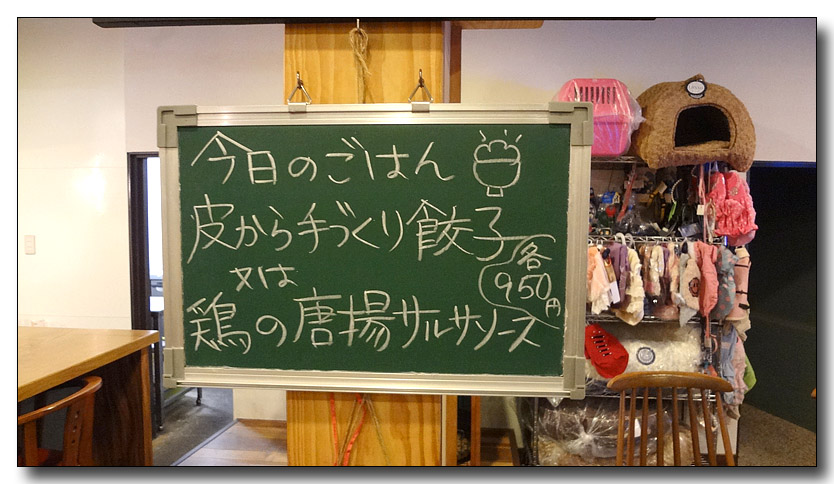 今日のごはん
皮から手づくり餃子
又は
鶏の唐揚サルサソース
各
950円